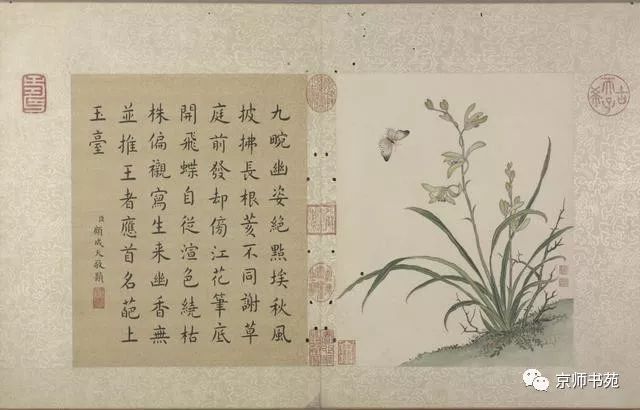 九畹幽姿絶點埃秋風
披拂長根荄不同謝草
庭前發却傍江花筆底
開飛蝶自從渲色繞枯
株偏襯寫生来幽香無
並推王者應首名葩上
玉臺
臣顧成天敬題
古希天子
京师书苑